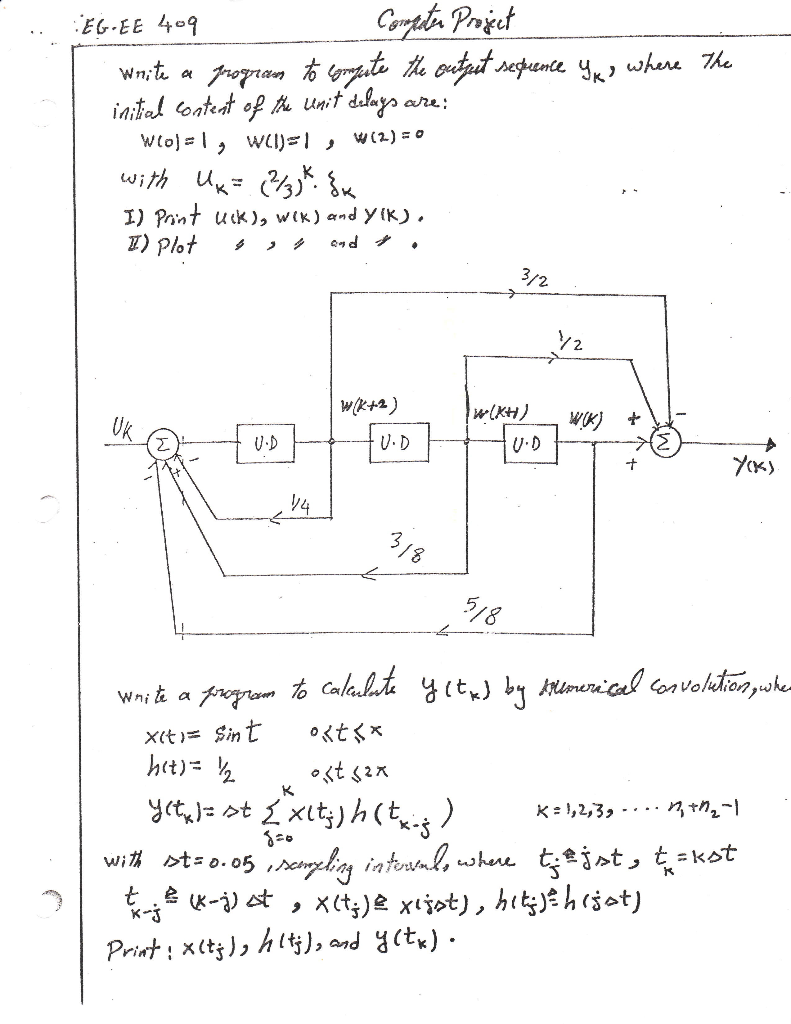 EG-EE 409 Computer Project
Write a program to compute the output sequence yₖ, where The
initial content of the Unit delays are:
W(0)=1, W(1)=1, W(2)=0
with Uₖ= (2/3)ᴷ. ξₖ
I) Print U(K), W(K) and Y(K).
II) Plot 〃 , 〃 and 〃 .
3/2
1/2
W(K+2) W(K+1) W(K) + -
Uₖ Σ U.D U.D U.D Σ
- + - + Y(K)
1/4
3/8
5/8
Write a program to Calculate y(tₖ) by Numerical convolution, whe
x(t)= Sin t 0≤t≤π
h(t)= 1/2 0≤t≤2π
K
y(tₖ)= Δt Σ x(tⱼ) h(tₖ₋ⱼ) K=1,2,3, .... n₁+n₂-1
j=0
with Δt=0.05, sampling interval, where tⱼ≜jΔt, tₖ=KΔt
tₖ₋ⱼ≜(K-j)Δt , x(tⱼ)≜x(jΔt), h(tⱼ)≜h(jΔt)
Print: x(tⱼ), h(tⱼ), and y(tₖ).